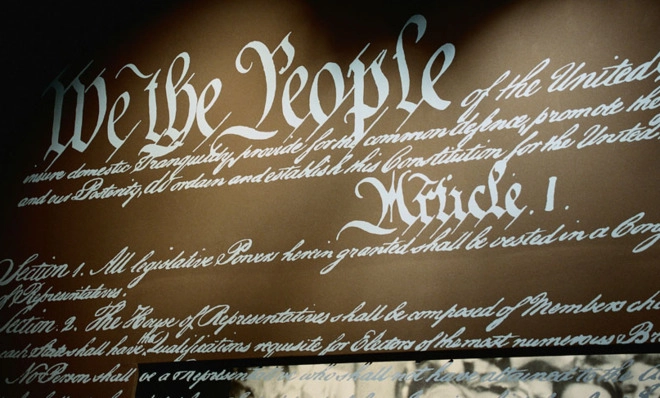 We the People of the United
insure domestic Tranquility, provide for the common defence, promote the
and our Posterity, do ordain and establish this Constitution for the United
Article. I.
Section 1. All legislative Powers herein granted shall be vested in a Cong
of Representatives.
Section. 2. The House of Representatives shall be composed of Members cho
each State shall have Qualifications requisite for Electors of the most numerous Br
No Person shall be a Representative who shall not have attained to the